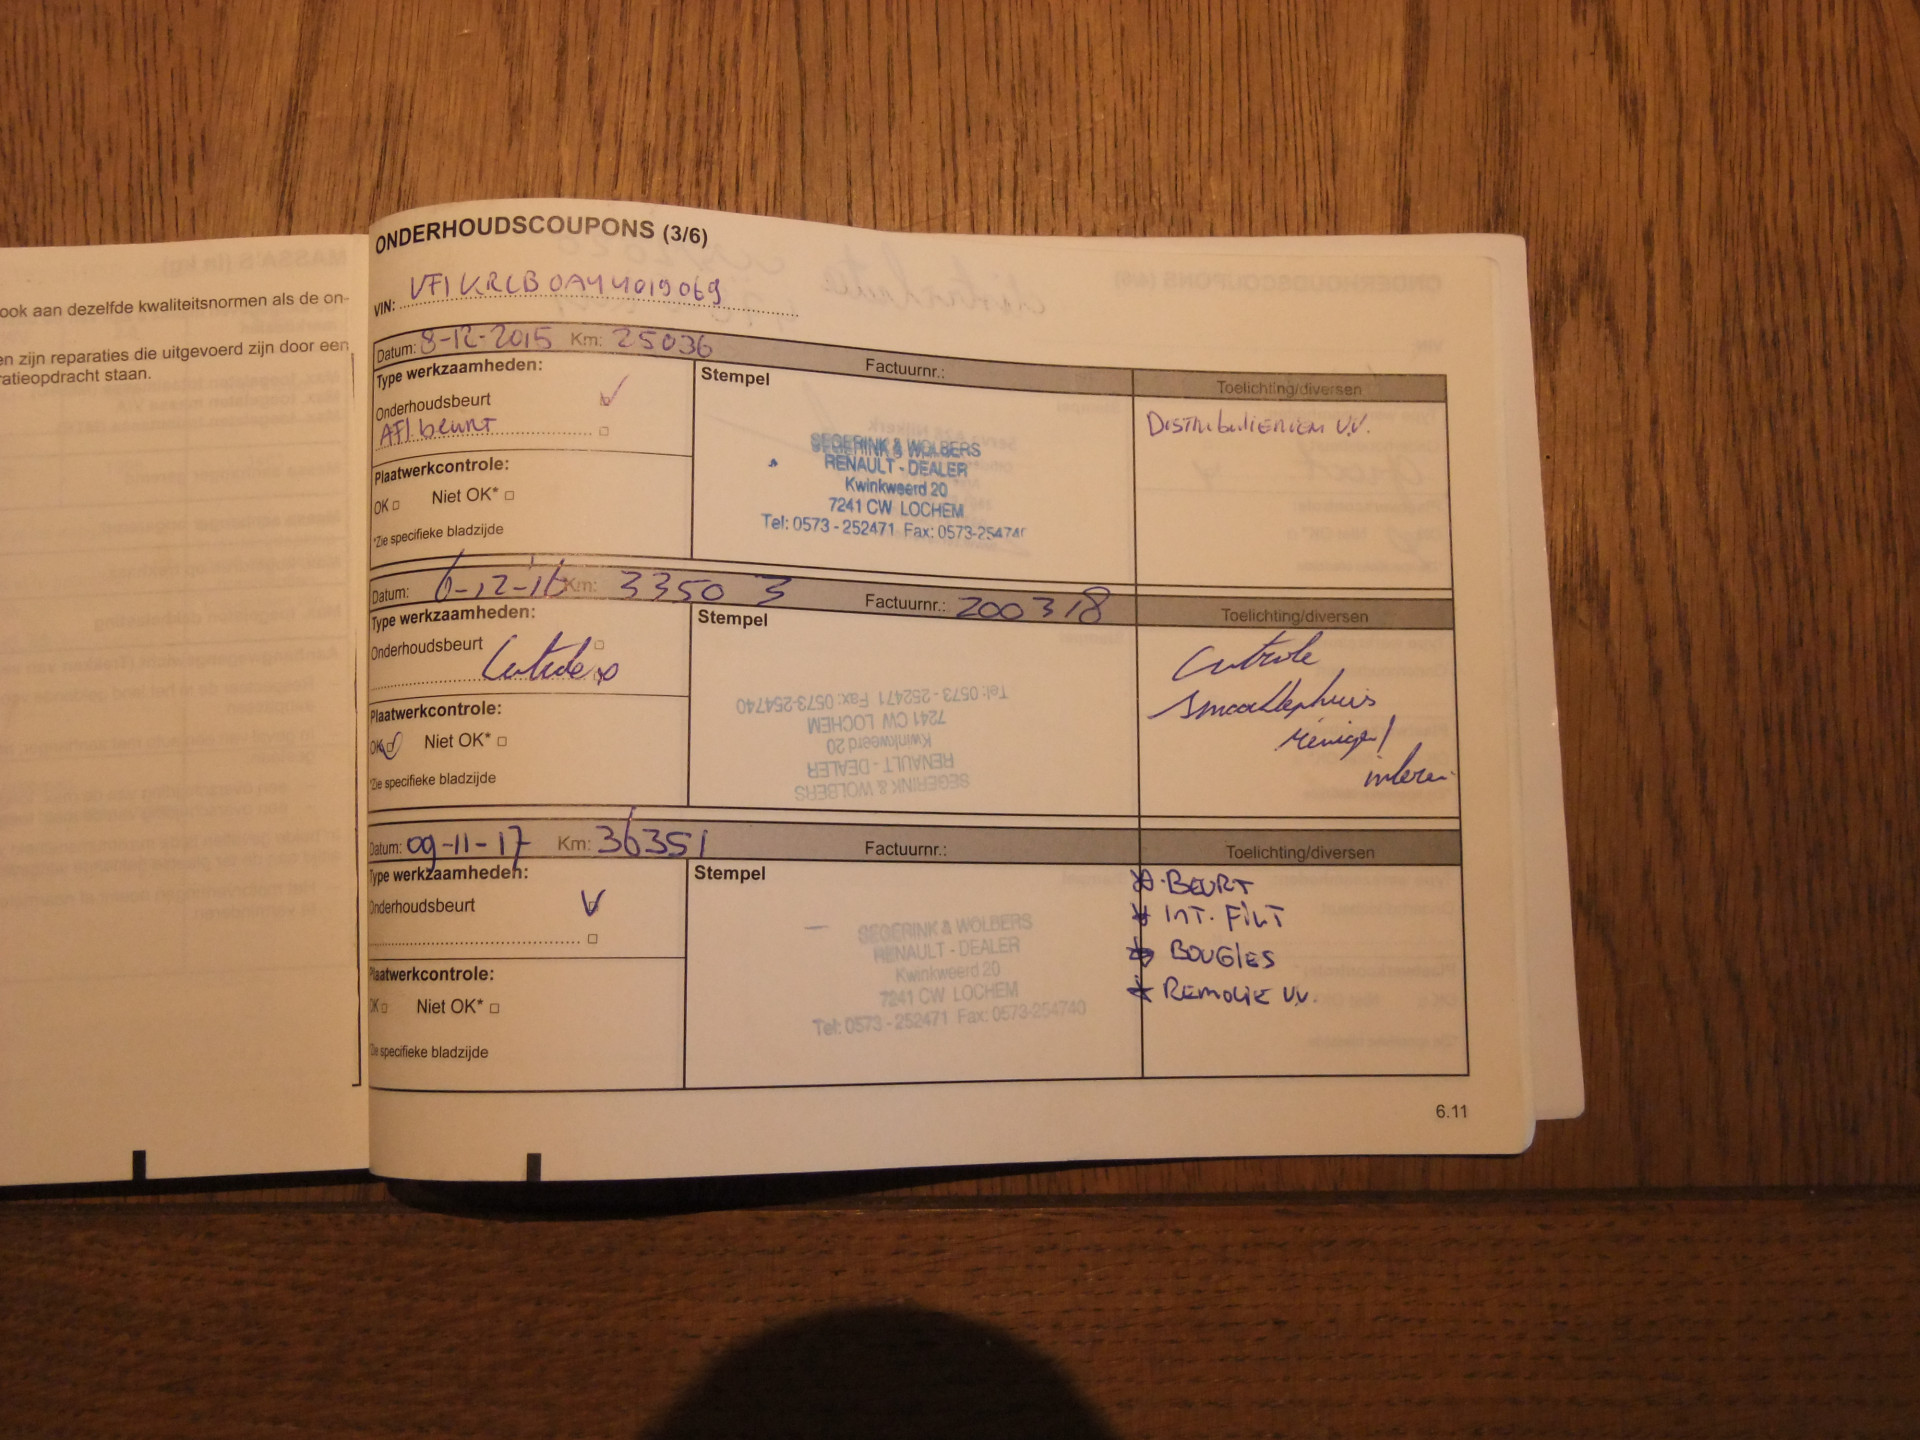 ook aan dezelfde kwaliteitsnormen als de on-
en zijn reparaties die uitgevoerd zijn door een
ratieopdracht staan.
ONDERHOUDSCOUPONS (3/6)
VIN: VF1KRCB0A44019069
Datum: 8-12-2015 Km: 25036 Factuurnr.: Toelichting/diversen
Type werkzaamheden:
Stempel
Onderhoudsbeurt
AFl. beurt
DISTRIBUTIERIEM V.V.
SEGERINK & WOLBERS
RENAULT - DEALER
Kwinkweerd 20
7241 CW LOCHEM
Tel: 0573 - 252471 Fax: 0573-254740
Plaatwerkcontrole:
OK Niet OK*
*Zie specifieke bladzijde
Datum: 6-12-16 Km: 33503 Factuurnr.: 200318 Toelichting/diversen
Type werkzaamheden:
Stempel
Onderhoudsbeurt
Controle
SEGERINK & WOLBERS
RENAULT - DEALER
Kwinkweerd 20
7241 CW LOCHEM
Tel: 0573 - 252471 Fax: 0573-254740
Plaatwerkcontrole:
OK Niet OK*
*Zie specifieke bladzijde
Datum: 09-11-17 Km: 36351 Factuurnr.: Toelichting/diversen
Type werkzaamheden:
Stempel
Onderhoudsbeurt
BEURT
INT. FILT
BOUGIES
REMOLIE V.V.
SEGERINK & WOLBERS
RENAULT - DEALER
Kwinkweerd 20
7241 CW LOCHEM
Tel: 0573 - 252471 Fax: 0573-254740
Plaatwerkcontrole:
OK Niet OK*
*Zie specifieke bladzijde
6.11